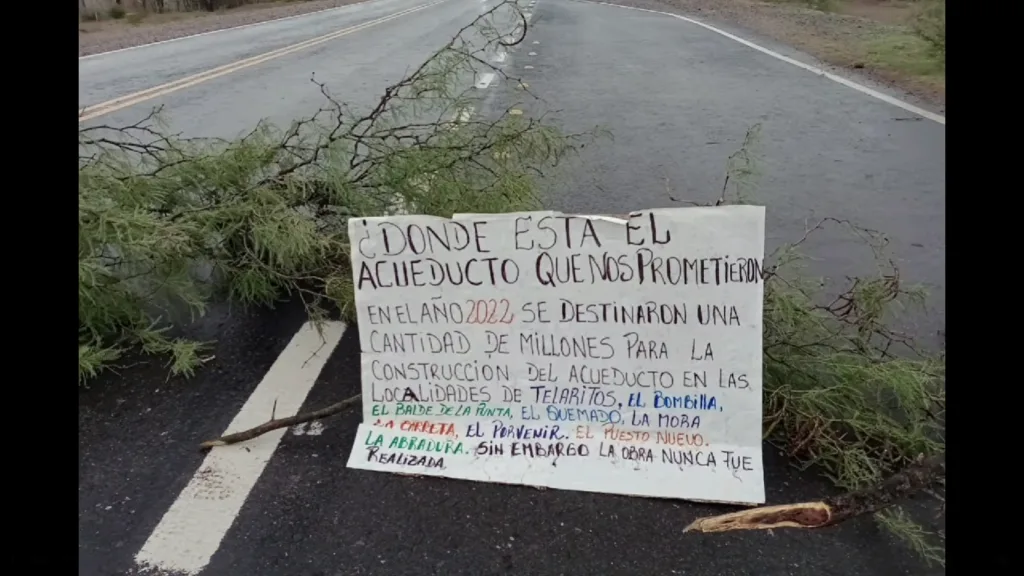 ¿DONDE ESTA EL
ACUEDUCTO QUE NOS PROMETIERON
EN EL AÑO 2022 SE DESTINARON UNA
CANTIDAD DE MILLONES PARA LA
CONSTRUCCION DEL ACUEDUCTO EN LAS
LOCALIDADES DE TELARITOS, EL BOMBILLA,
EL BALDE DE LA PUNTA, EL QUEMADO, LA MORA
LA CARRETA, EL PORVENIR. EL PUESTO NUEVO.
LA ABRADURA. SIN EMBARGO LA OBRA NUNCA FUE
REALIZADA